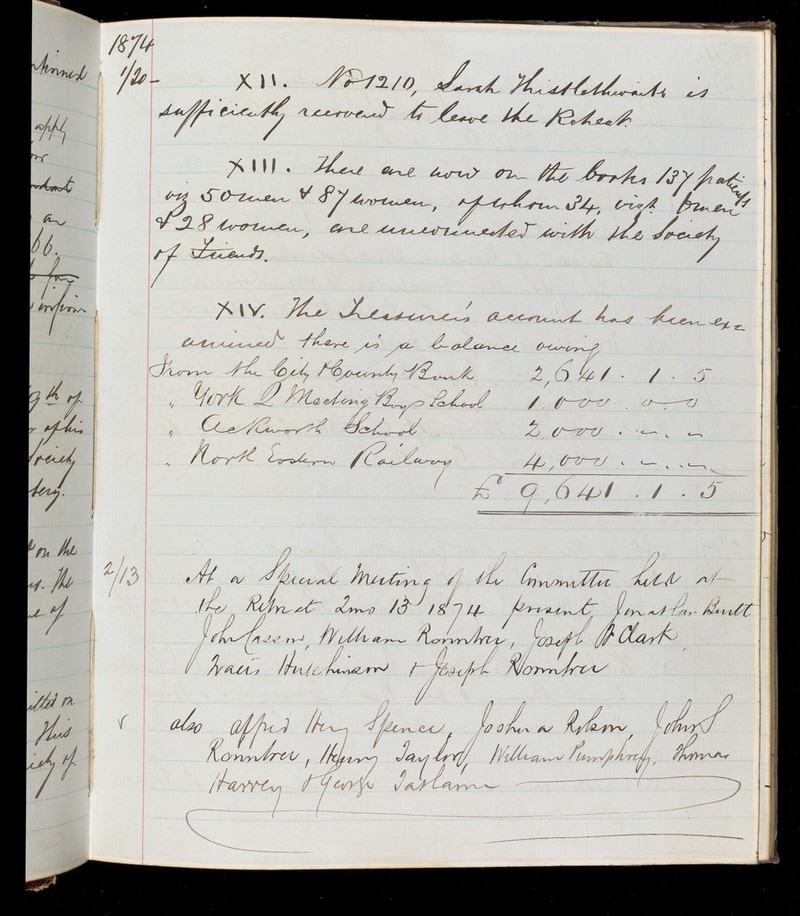 1874
1/20-
XII. No 1210, Sarah Thistlethwaite is
sufficiently recovered to leave the Retreat.
XIII. There are now on the books 137 patients
viz 50 men & 87 women, of whom 34, viz. 6 men
& 28 women, are unconnected with the Society
of Friends.
XIV. The Treasurer's account has been ex=
amined there is a balance owing
From the City & County Bank 2,641 . 1 . 5
" York Q Meeting Boys School 1,000 . 0 . 0
" Ackworth School 2,000 . " . "
" North Eastern Railway 4,000 . " . "
£ 9,641 . 1 . 5
2/13
At a Special Meeting of the Committee held at
the Retreat 2mo 13 1874 present Jonathan Burtt
John Casson, William Rowntree, Joseph B Clark
Hutchinson & Joseph Rowntree
also Henry Spence, Joshua Robson, John S
Rowntree, Henry Taylor, William Pumphrey, Thomas
Harvey & George Satham
apply
or
an
66.
9th of
of his
Society
on the
The
e of
This
iety of